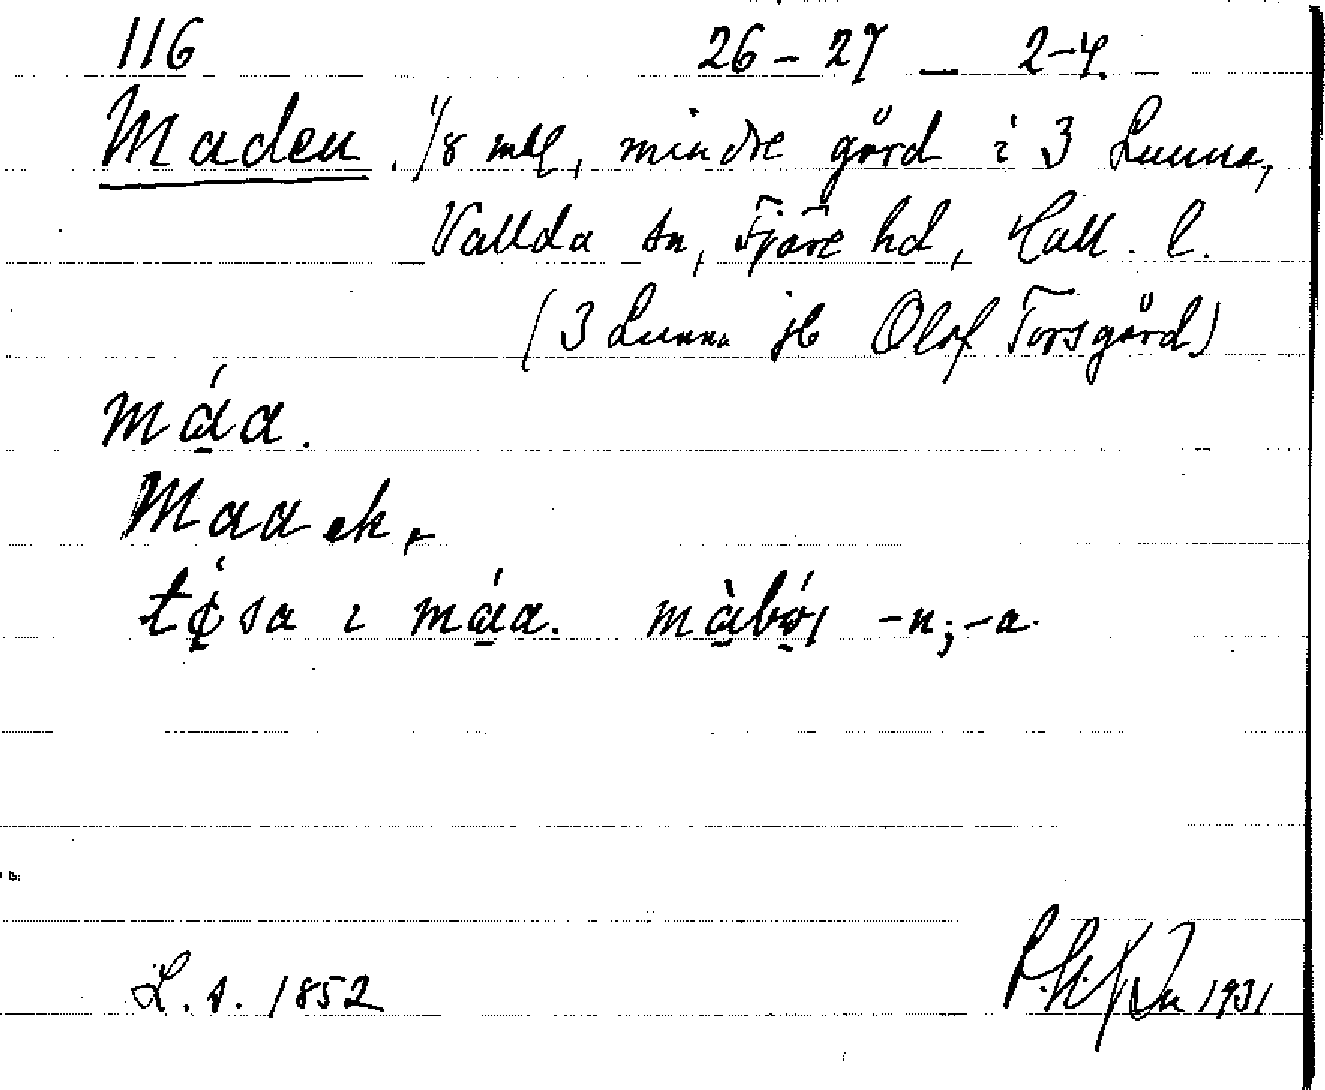 116 26-27 — 2-4.
Maden. 1/8 mtl, mindre gård i 3 Lunna,
Vallda sn, Fjäre hd, Hall. l.
(3 Lunna jb Olof Torsgård)
máa.
Maa ek,
sa i máa. -n; -a.
L. s. 1852
1931